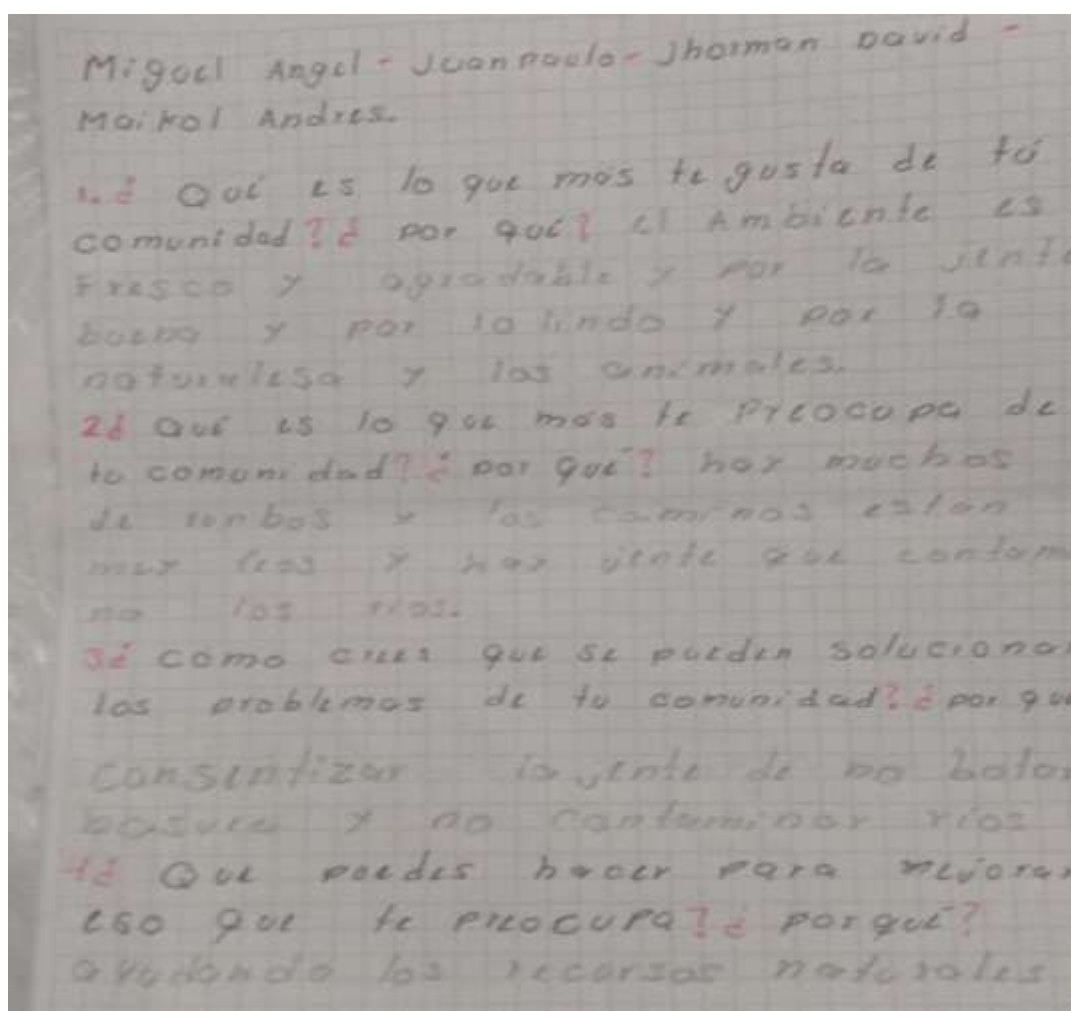 Miguel Angel - Juan paulo - Jhorman David -
Maikol Andres.
1. ¿ Qué es lo que mas te gusta de tú
comunidad? ¿ por qué? el Ambiente es
Fresco y agradable y por la jente
buena y por lo lindo y por la
naturalesa y los animales.
2¿ Qué es lo que mas te preocupa de
tu comunidad? ¿ por qué? hay muchos
derrumbos y los caminos estan
muy feos y hay jente que contami
na los rios.
3¿ como crees que se pueden solucionar
los problemas de tu comunidad? ¿ por que
consentizar la jente de no botar
basura y no contaminar rios
4¿ Que puedes hacer para mejorar
eso que te preocupa? ¿ porqué?
ayudando los recursos naturales